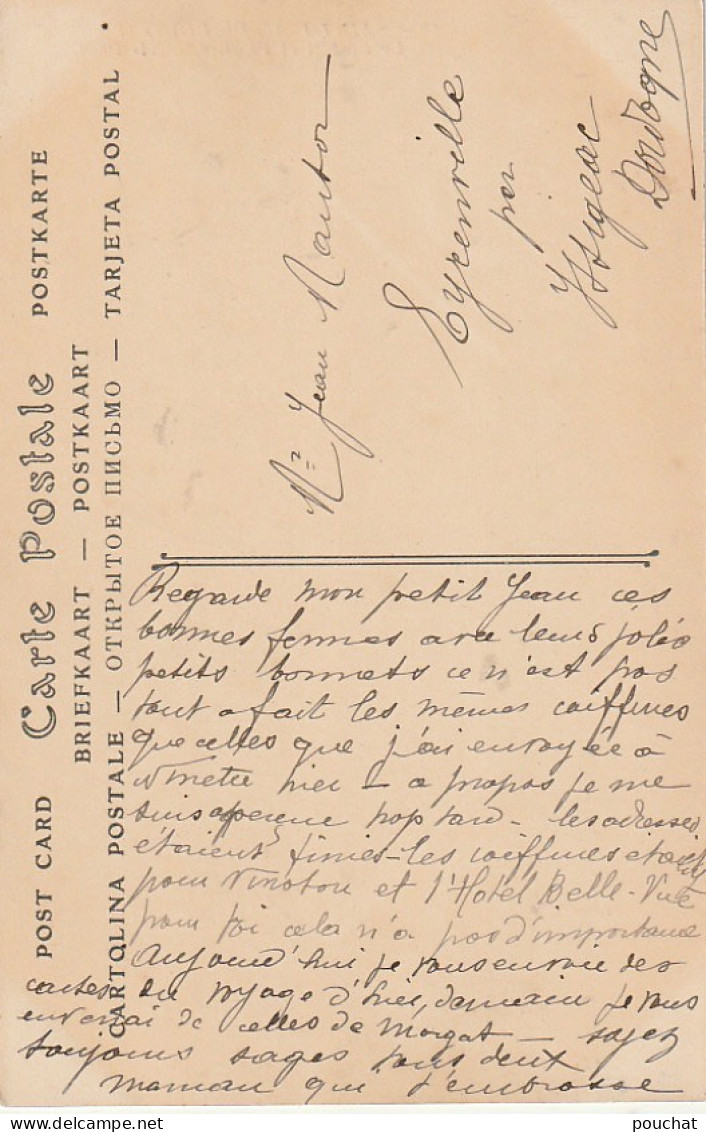 Carte Postale
POST CARD
POSTKARTE
BRIEFKAART — POSTKAART
CARTOLINA POSTALE — ОТКРЫТОЕ ПИСЬМО — TARJETA POSTAL
Mr Jean
Eyrenville
par
Issigeac
Dordogne
Regarde mon petit Jean ces
bonnes femmes avec leurs jolis
petits bonnets ce n'est pas
tout a fait les mêmes coiffures
que celles que j'ai envoyée à
hier — a propos je me
suis aperçue trop tard — les adresses
étaient finies — les coiffures étaient
pour et l'Hotel Belle-Vue
pour toi cela n'a pas d'importance
Aujourd'hui je vous envoie des
cartes du voyage d'hier, demain je vous
enverrai de celles de Morgat — soyez
toujours sages tous deux
maman qui t'embrasse
pouchat